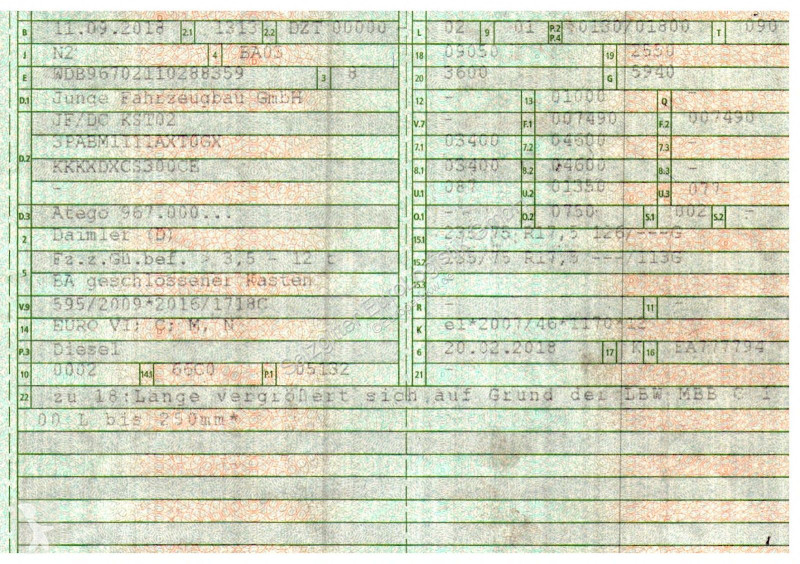 B 11.09.2018 2.1 1313 2.2 DZT 00000 -
J N2 4 BA03
E WDB96702110288359 3 8
D.1 Junge Fahrzeugbau GmbH
JF/DC KST02
D.2 3PABM1111AXT0GX
KKKXDXCS300CE
-
D.3 Atego 967.000...
2 Daimler (D)
5 Fz.z.Gü.bef. > 3,5 - 12 t
BA geschlossener Kasten
V.9 595/2009*2016/1718C
14 EURO VI; C; M, N
P.3 Diesel
10 0002 14.1 66C0 P.1 05132
L 02 9 01 P.2 P.4 0130/01800 T 090
18 09050 19 2550
20 3600 G 5940
12 - 13 01000 Q -
V.7 - F.1 007490 F.2 007490
7.1 03400 7.2 04600 7.3 -
8.1 03400 8.2 04600 8.3 -
U.1 087 U.2 01350 U.3 077
O.1 - O.2 0750 S.1 002 S.2 -
15.1 235/75 R17,5 126/---G
15.2 235/75 R17,5 ---/113G
15.3 -
R - 11 -
K e1*2007/46*1170*12
6 20.02.2018 17 K 16 EA777794
21 -
22 zu 18:Länge vergrößert sich auf Grund der LBW MBB C 1
00 L bis 250mm*